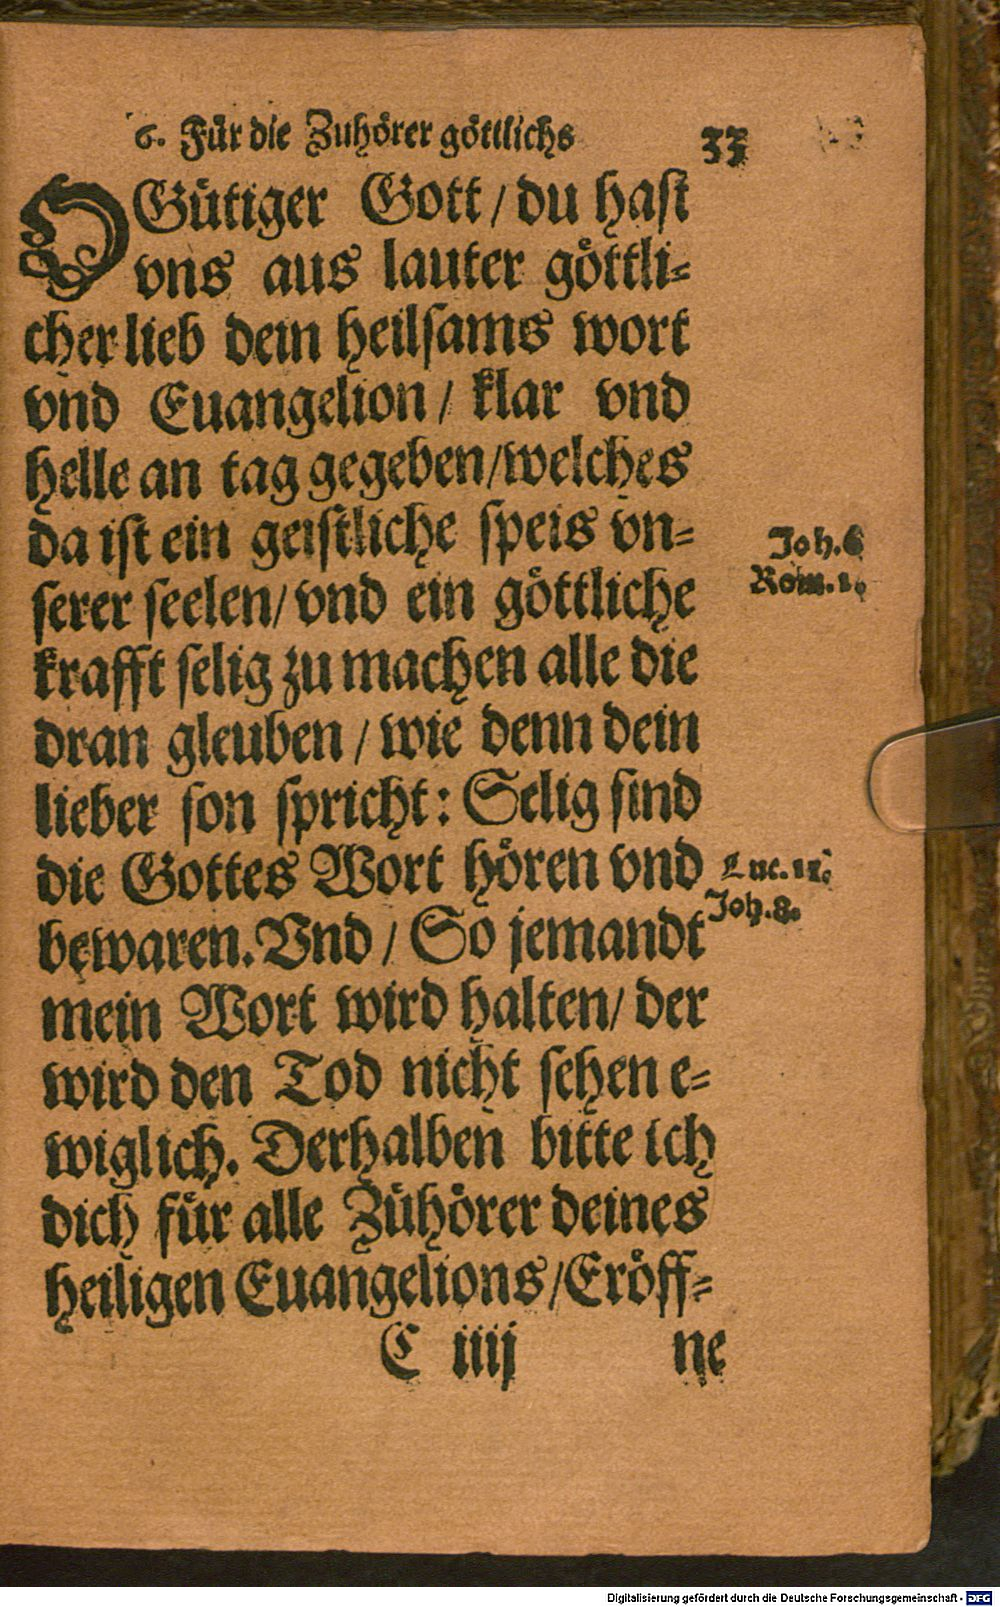 6. Für die Zuhörer göttlichs 33
O Gütiger Gott / du hast
vns aus lauter göttli⸗
cher lieb dein heilsams wort
vnd Euangelion / klar vnd
helle an tag gegeben / welches
da ist ein geistliche speis vn⸗
serer seelen / vnd ein göttliche
krafft selig zu machen alle die
dran gleuben / wie denn dein
lieber son spricht: Selig sind
die Gottes Wort hören vnd
bewaren. Vnd / So jemandt
mein Wort wird halten / der
wird den Tod nicht sehen e⸗
wiglich. Derhalben bitte ich
dich für alle Zuhörer deines
heiligen Euangelions / Eröff⸗
C iiij ne
Joh. 6
Rom. 1.
Luc. 11.
Joh. 8.
Digitalisierung gefördert durch die Deutsche Forschungsgemeinschaft - DFG